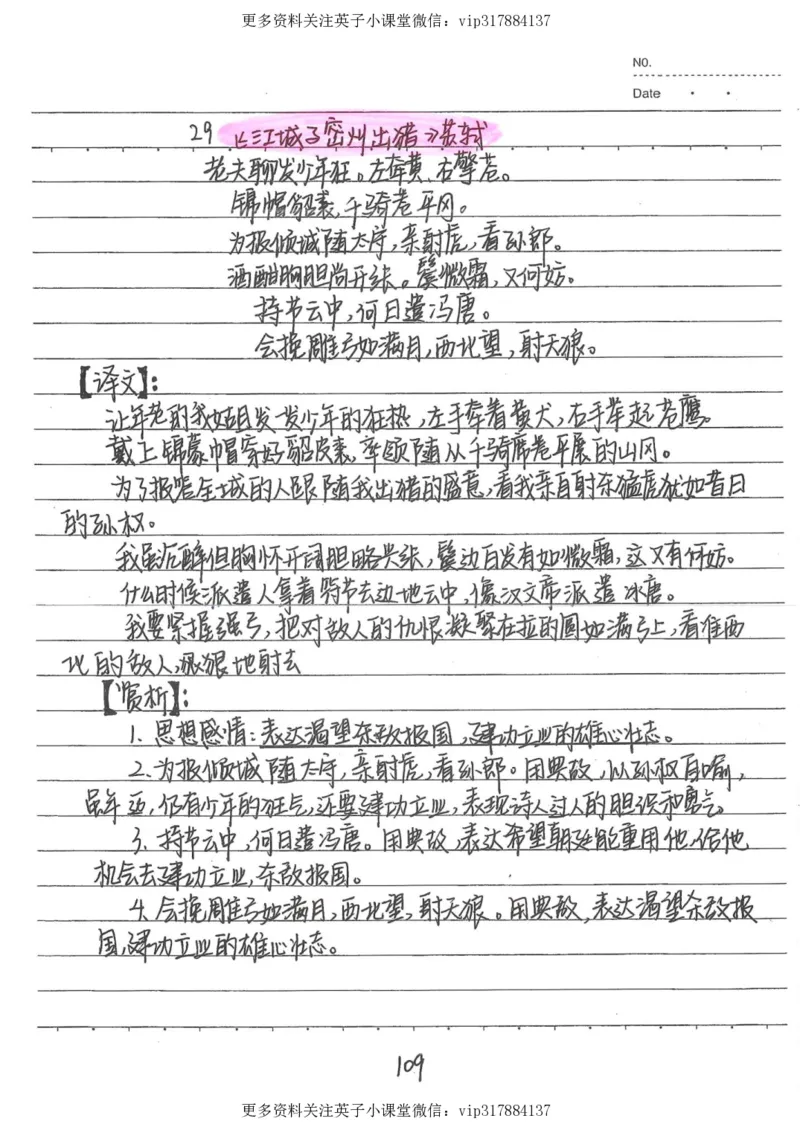 更多资料关注英子小课堂微信：vip317884137
NO.
Date
29 《江城子密州出猎》苏轼
老夫聊发少年狂。左牵黄，右擎苍。
锦帽貂裘，千骑卷平冈。
为报倾城随太守，亲射虎，看孙郎。
酒酣胸胆尚开张。鬓微霜，又何妨。
持节云中，何日遣冯唐。
会挽雕弓如满月，西北望，射天狼。
【译文】：
让年老的我姑且发一发少年的狂热，左手牵着黄犬，右手举起苍鹰。
戴上锦蒙帽穿好貂皮裘，率领随从千骑席卷平展的山冈。
为了报答全城的人跟随我出猎的盛意，看我亲自射杀猛虎犹如昔日
的孙权。
我虽沉醉但胸怀开阔胆略兴张，鬓边白发有如微霜，这又有何妨。
什么时候派遣人拿着符节去边地云中，像汉文帝派遣冰唐。
我要紧握强弓，把对敌人的仇恨凝聚在拉的圆如满弓上，看准西
北的敌人，狠狠地射去
【赏析】：
1. 思想感情：表达渴望杀敌报国，建功立业的雄心壮志。
2. 为报倾城随太守，亲射虎，看孙郎。用典故，以孙权自喻，
虽年迈，仍有少年的狂气，还要建功立业，表现诗人过人的胆识和勇气
3. 持节云中，何日遣冯唐。用典故，表达希望朝廷能重用他，给他
机会去建功立业，杀敌报国。
4. 会挽雕弓如满月，西北望，射天狼。用典故，表达渴望杀敌报
国，建功立业的雄心壮志。
109
更多资料关注英子小课堂微信：vip317884137